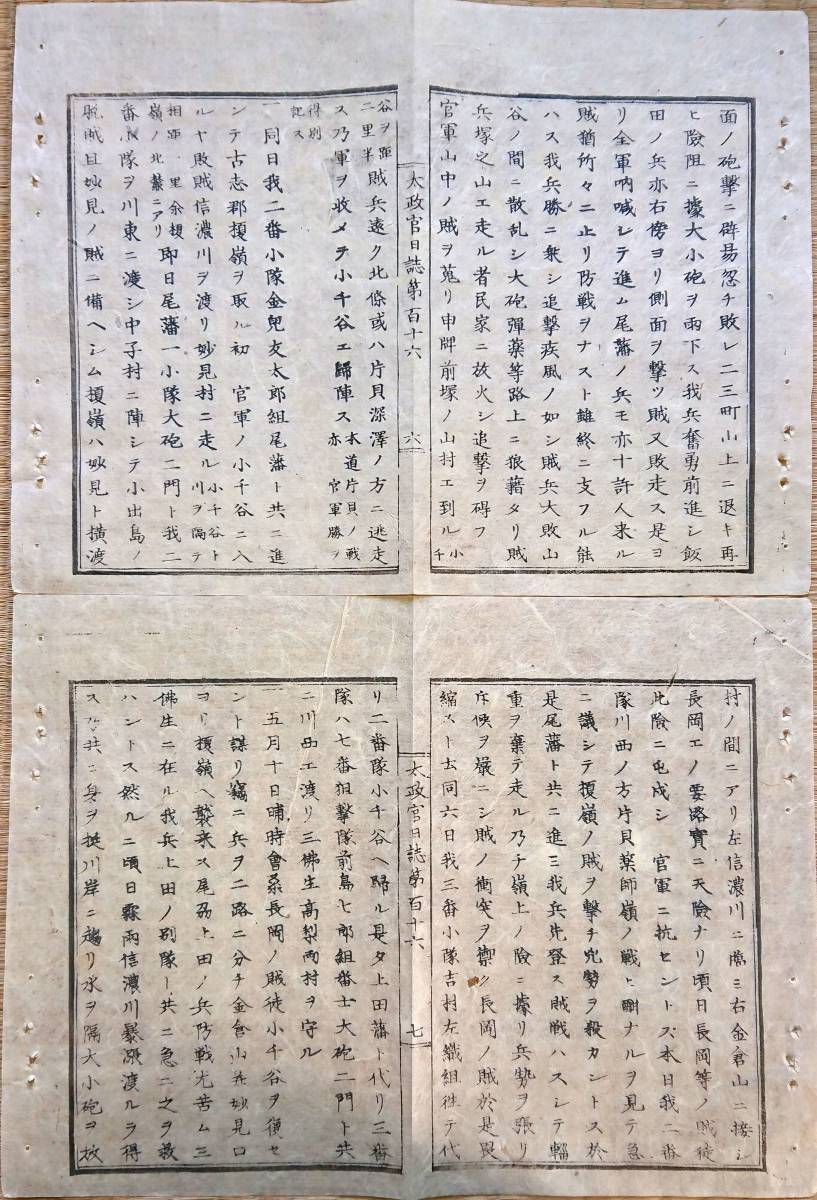 面ノ砲撃ニ辟易忽チ敗レ二三町山上ニ退キ再
ヒ險阻ニ據大小砲ヲ雨下ス我兵奮勇前進シ飯
田ノ兵亦右傍ヨリ側面ヲ撃ツ賊又敗走ス是ヨ
リ全軍吶喊シテ進ム尾藩ノ兵モ亦十許人来ル
賊猶所々ニ止リ防戦ヲナスト雖終ニ支フル能
ハス我兵勝ニ乗シ追撃疾風ノ如シ賊兵大敗山
谷ノ間ニ散乱シ大砲彈薬等路上ニ狼藉タリ賊
兵塚之山エ走ル者民家ニ放火シ追撃ヲ碍フ
官軍山中ノ賊ヲ蒐リ申牌前塚ノ山村エ到ル小千
太政官日誌第百十六 六
谷ヲ距二里半賊兵遠ク北條或ハ片貝深澤ノ方ニ逃走
ス乃軍ヲ收メテ小千谷エ歸陣ス本道片貝ノ戦亦官軍勝ヲ
得別記ス
一同日我二番小隊金兒友太郎組尾藩ト共ニ進
ンテ古志郡榎嶺ヲ取ル初官軍ノ小千谷ニ入
ルヤ敗賊信濃川ヲ渡リ妙見村ニ走ル小千谷ト川ヲ隔テ
相距里余榎嶺ノ北麓ニアリ即日尾藩一小隊大砲二門ト我二
番小隊ヲ川東ニ渡シ中子村ニ陣シテ小出島ノ
脱賊且妙見ノ賊ニ備ヘシム榎嶺ハ妙見ト横渡
村ノ間ニアリ左信濃川ニ臨ミ右金倉山ニ接シ
長岡エノ要路實ニ天險ナリ頃日長岡等ノ賊徒
此險ニ屯戍シ官軍ニ抗セントス本日我二番
隊川西ノ方片貝薬師嶺ノ戦ヒ酣ナルヲ見テ急
ニ議シテ榎嶺ノ賊ヲ撃チ兇勢ヲ殺カントス於
是尾藩ト共ニ進ミ我兵先登ス賊戦ハスシテ輜
重ヲ棄テ走ル乃チ嶺上ノ險ニ據リ兵勢ヲ張リ
斥候ヲ嚴ニシ賊ノ衝突ヲ禦ク長岡ノ賊於是畏
縮スト云同六日我三番小隊吉村左織組徃テ代
太政官日誌第百十六 七
リ二番隊小千谷ヘ歸ル是夕上田藩ト代リ三番
隊ハ七番狙撃隊前島七郎組番士大砲二門ト共
ニ川西エ渡リ三佛生高梨両村ヲ守ル
一五月十日晡時會桑長岡ノ賊徒小千谷ヲ復セ
ント謀リ竊ニ兵ヲ二路ニ分チ金倉山并妙見口
ヨリ榎嶺ヘ襲来ス尾藩上田ノ兵防戦尤苦ム三
佛生ニ在ル我兵上田ノ別隊ト共ニ急ニ之ヲ救
ハントス然ルニ頃日霖雨信濃川暴漲渡ルヲ得
ス共ニ身ヲ挺川岸ニ趨リ水ヲ隔大小砲ヲ放